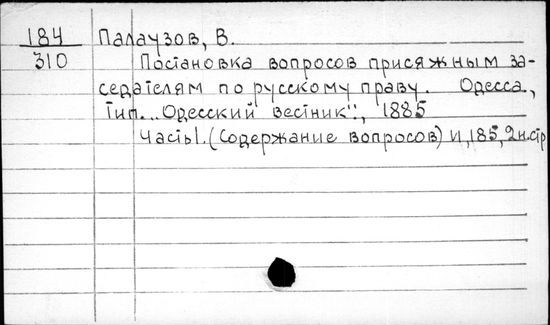 184 Палаузов, В.
310 Постановка вопросов присяжным за-
седателям по русскому праву. Одесса,
тип. „Одесский вестник“, 1885
Часть I. (Содержание вопросов) II, 185, 2 н. стр